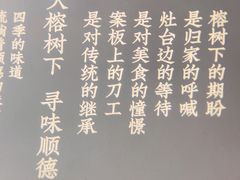 榕树下的期盼
是归家的呼喊
灶台边的等待
是对美食的憧憬
案板上的刀工
是对传统的继承
大榕树下 寻味顺德
四季的味道